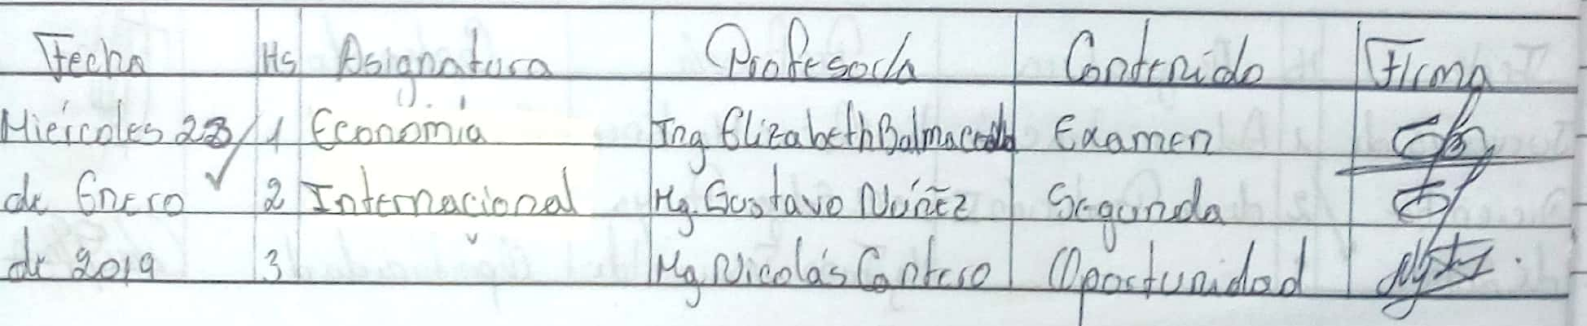 Fecha Hs Asignatura Profesor/a Contenido Firma
Miércoles 23/ 1 Economía Ing Elizabeth Balmaceda Examen
de Enero 2 Internacional Mg. Gustavo Núñez Segunda
de 2019 3 Mg Nicolás Cantero Oportunidad